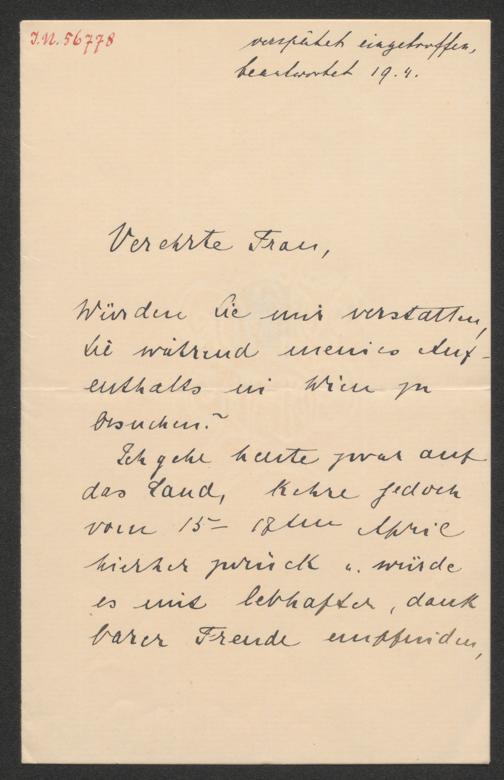 I.N. 56778
verspätet eingetroffen,
beantwortet 19.4.
Verehrte Frau,
Würden Sie mir verstatten,
Sie während meines Auf-
enthalts in Wien zu
besuchen?
Ich gehe heute zwar auf
das Land, kehre jedoch
vom 15– 18ten April
hierher zurück u. würde
es mit lebhafter, dank
barer Freude empfinden,